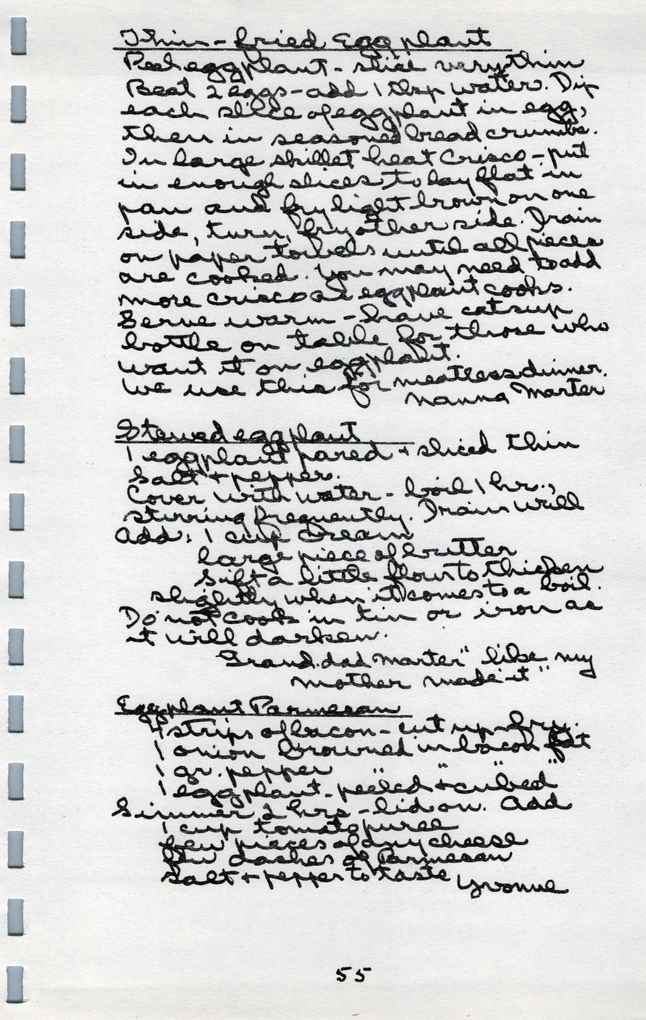 Thin-fried Eggplant
Peel eggplant - slice very thin
Beat 2 eggs - add 1 tbsp water. Dip
each slice of eggplant in egg,
then in seasoned bread crumbs.
In large skillet heat Crisco - put
in enough slices to lay flat in
pan and fry light brown on one
side, turn, fry other side. Drain
on paper towels until all pieces
are cooked. You may need to add
more crisco as eggplant cooks.
Serve warm - have catsup
bottle on table for those who
want it on eggplant.
We use this for meatless dinner.
Nanna Marter
Stewed eggplant
1 eggplant pared + sliced thin
Salt + pepper.
Cover with water - boil 1 hr.,
stirring frequently. Drain well
Add: 1 cup cream
large piece of butter
Sift a little flour to thicken
slightly when it comes to a boil.
Do not cook in tin or iron as
it will darken.
Grand dad Marter "like my
mother made it"
Eggplant Parmesan
4 strips of bacon - cut up - fry.
1 onion browned in bacon fat
1 gr. pepper " " "
1 eggplant - peeled + cubed
Simmer 2 hrs - lid on. Add
1 cup tomato puree
few pieces of any cheese
few dashes of Parmesan
Salt + pepper to taste Yvonne
55